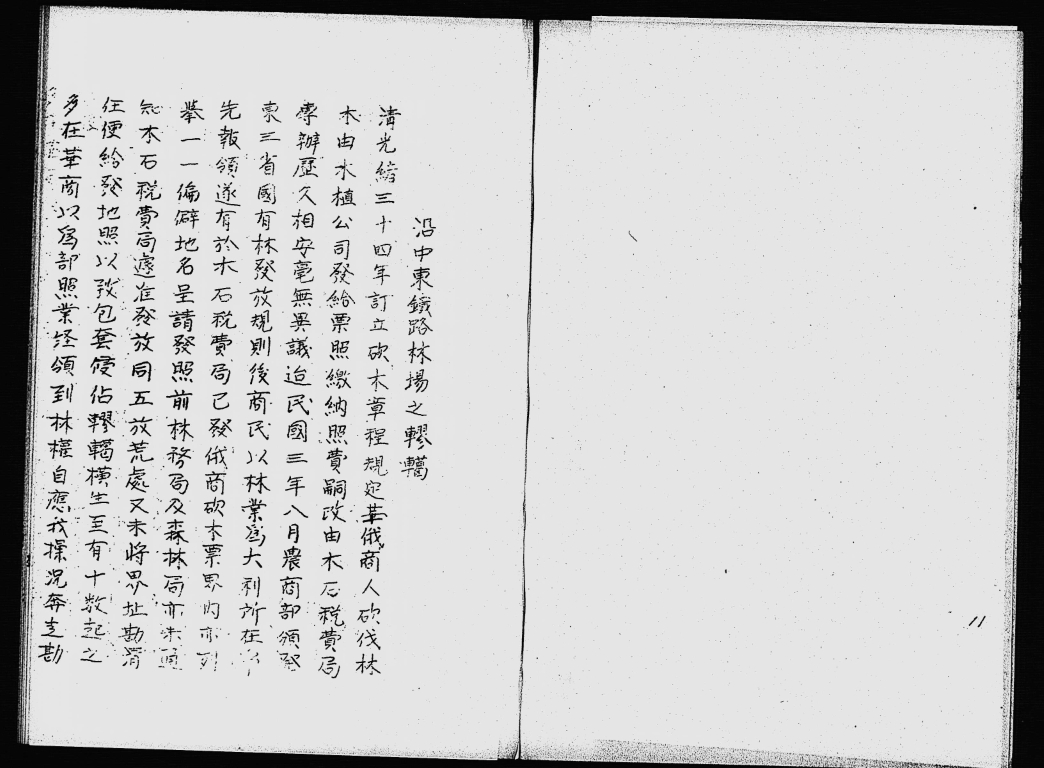 沿中東鐵路林場之轇轕
清光緒三十四年訂立砍木章程規定華俄商人砍伐林
木由水植公司發給票照繳納照費嗣改由木石稅費局
專辦歷久相安毫無異議迨民國三年八月農商部頒發
東三省國有林發放規則後商民以林業為大利所在
先報領遂有於木石稅費局已發俄商砍木票界內亦列
舉一一偏僻地名呈請發照前林務局及森林局亦未通
知木石稅費局遽准發放同五放荒處又未將界址勘清
任便給發地照以致包套侵佔轇轕橫生至有十數起之
多在華商以為部照業經領到林權自應我操況奔走勘
11